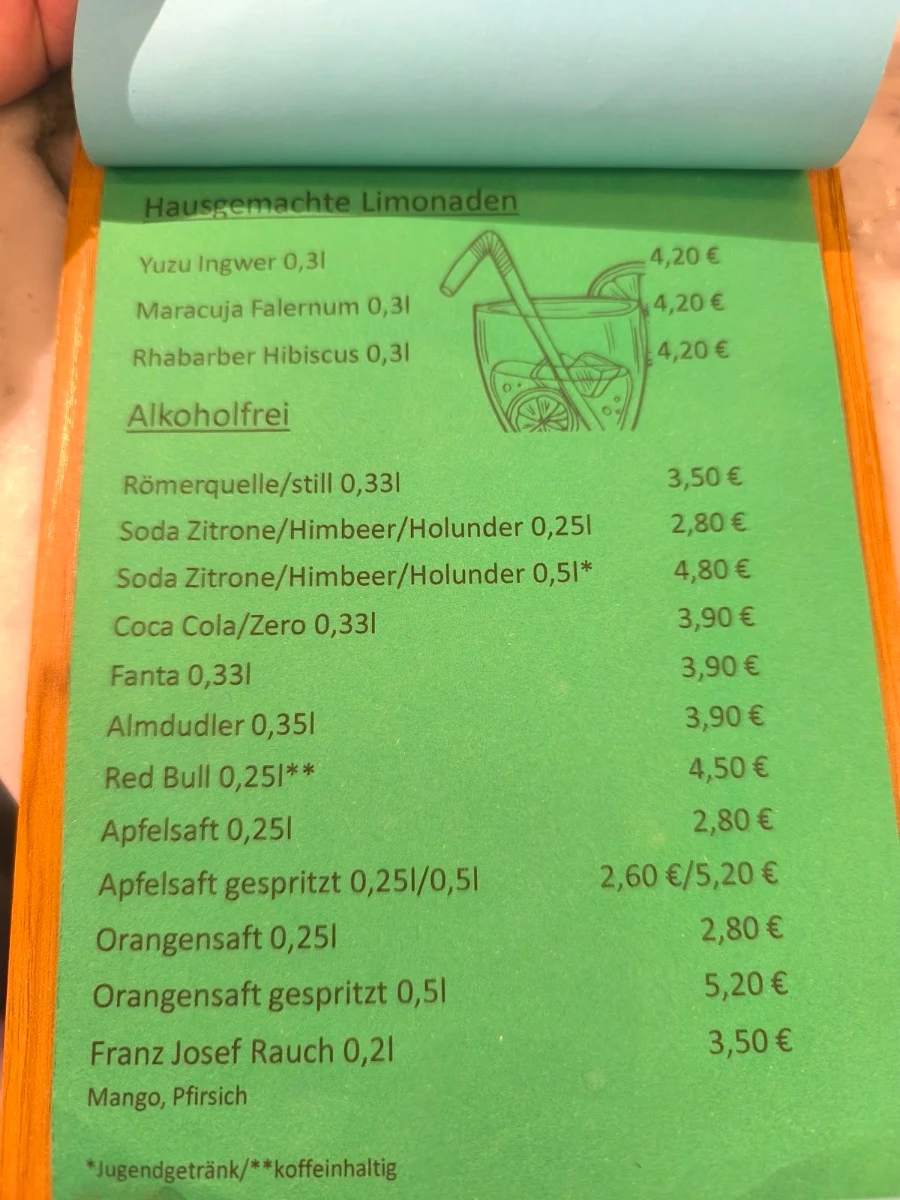 Hausgemachte Limonaden
Yuzu Ingwer 0,3l 4,20 €
Maracuja Falernum 0,3l 4,20 €
Rhabarber Hibiscus 0,3l 4,20 €
Alkoholfrei
Römerquelle/still 0,33l 3,50 €
Soda Zitrone/Himbeer/Holunder 0,25l 2,80 €
Soda Zitrone/Himbeer/Holunder 0,5l* 4,80 €
Coca Cola/Zero 0,33l 3,90 €
Fanta 0,33l 3,90 €
Almdudler 0,35l 3,90 €
Red Bull 0,25l** 4,50 €
Apfelsaft 0,25l 2,80 €
Apfelsaft gespritzt 0,25l/0,5l 2,60 €/5,20 €
Orangensaft 0,25l 2,80 €
Orangensaft gespritzt 0,5l 5,20 €
Franz Josef Rauch 0,2l 3,50 €
Mango, Pfirsich
*Jugendgetränk/**koffeinhaltig